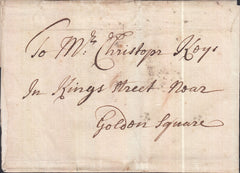 To Mr. Christopr Keys
In Kings street Near
Golden Square